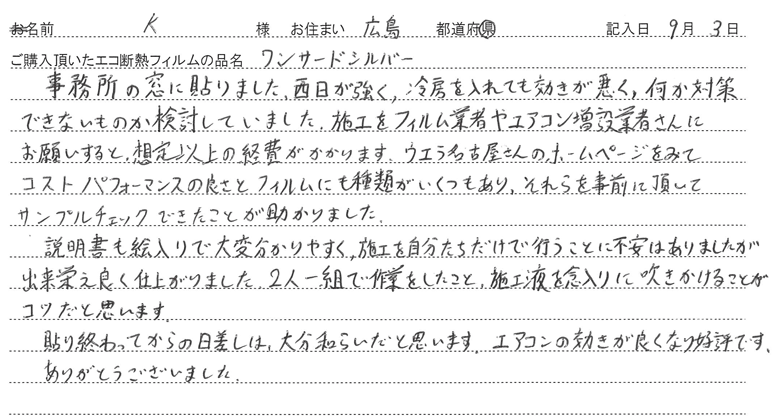 お名前 K 様 お住まい 広島 都道府県 記入日 9月 3日
ご購入頂いたエコ断熱フィルムの品名 ワンサードシルバー
事務所の窓に貼りました。西日が強く、冷房を入れても効きが悪く、何か対策
できないものか検討していました。施工をフィルム業者やエアコン増設業者さんに
お願いすると、想定以上の経費がかかります。ウエラ名古屋さんのホームページをみて
コストパフォーマンスの良さとフィルムにも種類がいくつもあり、それらを事前に頂して
サンプルチェックできたことが助かりました。
説明書も絵入りで大変分かりやすく、施工を自分たちだけで行うことに不安はありましたが
出来栄え良く仕上がりました。2人一組で作業をしたこと、施工液を念入りに吹きかけることが
コツだと思います。
貼り終わってからの日差しは、大分和らいだと思います。エアコンの効きが良くなり好評です。
ありがとうございました。